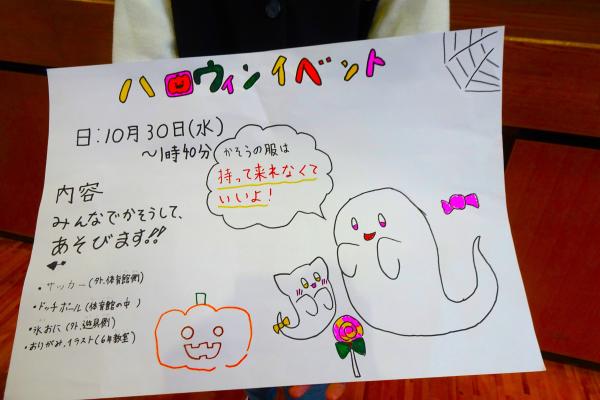 ハロウィンイベント
日:10月30日(水)
〜1時40分
かそうの服は
持って来れなくて
いいよ!
内容
みんなでかそうして、
あそびます!!
・サッカー(外、体育館側)
・ドッチボール(体育館の中)
・氷おに(外、遊具側)
・おりがみ、イラスト(6年教室)